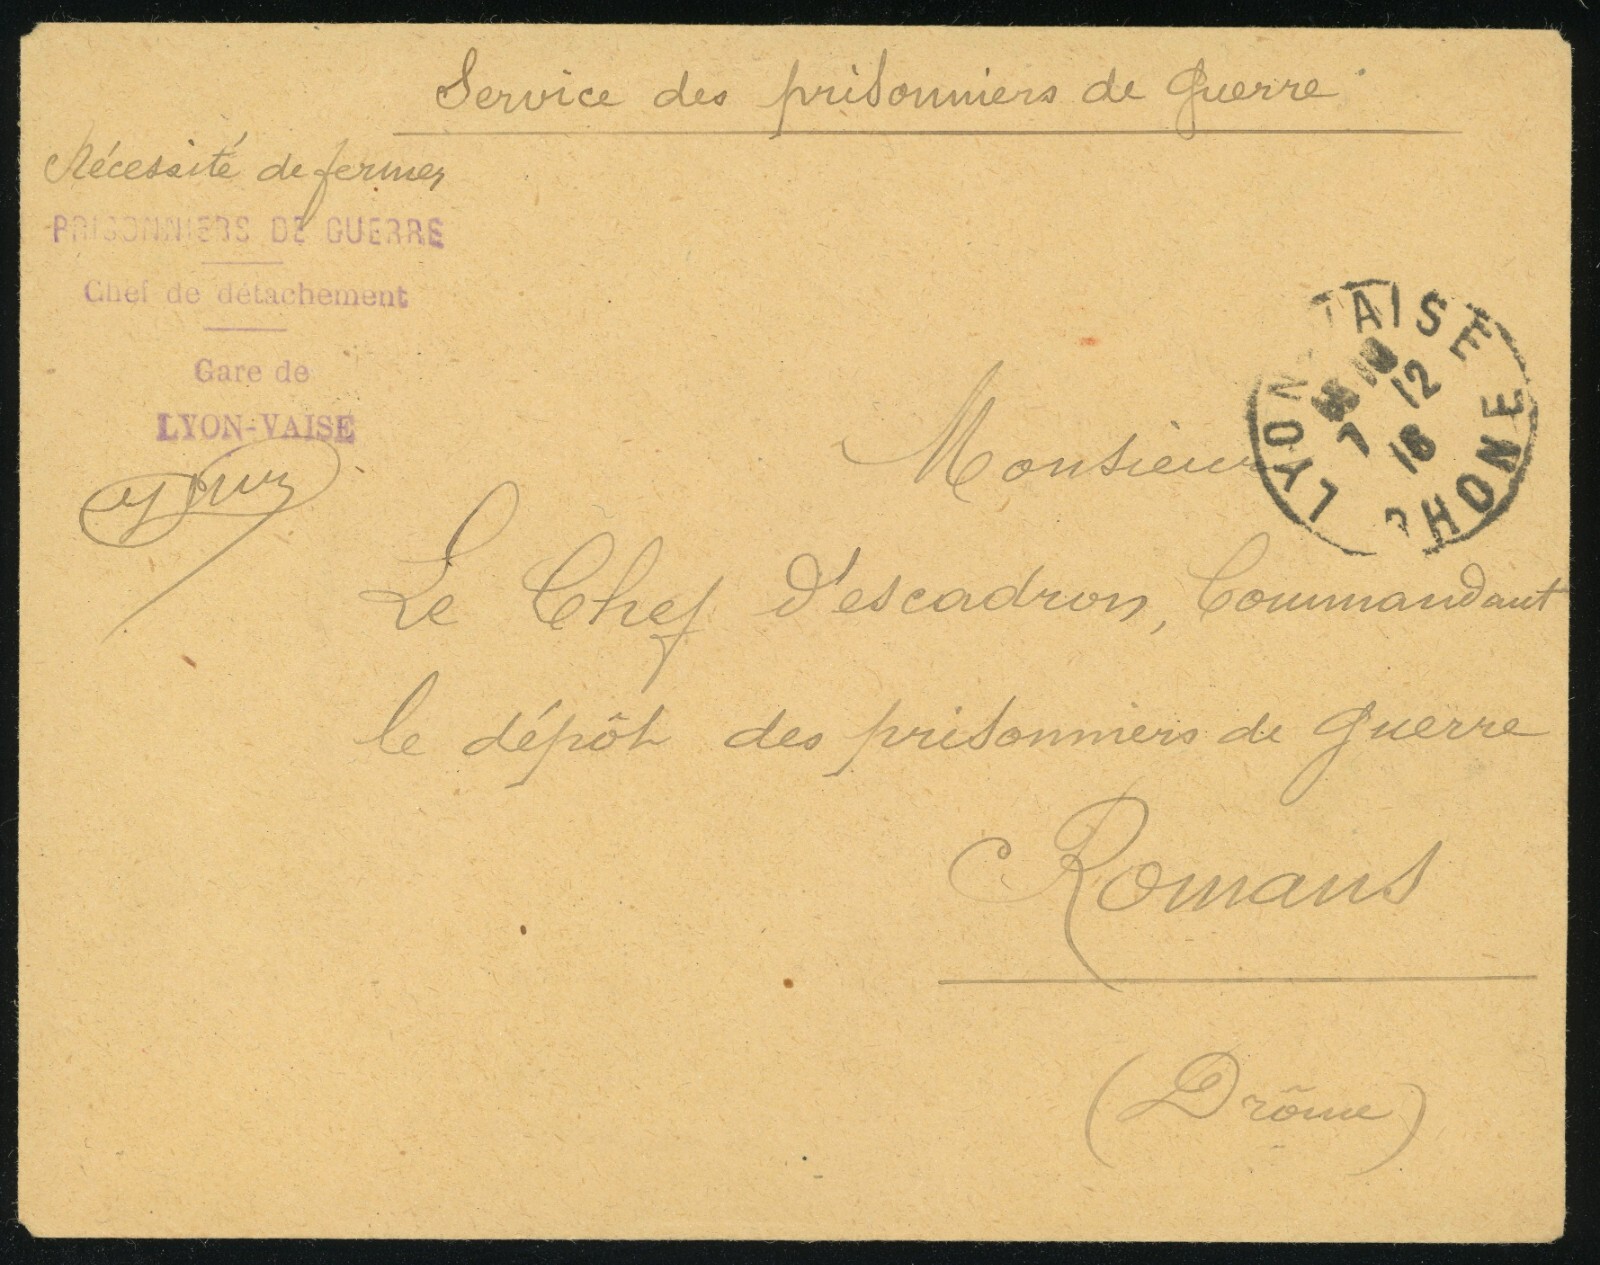 Service des prisonniers de guerre
Nécessité de fermer
PRISONNIERS DE GUERRE
Chef de détachement
Gare de
LYON-VAISE
LYON-VAISE RHONE
7 12
18
Monsieur
Le Chef d'escadron, Commandant
le dépôt des prisonniers de guerre
Romans
(Drôme)